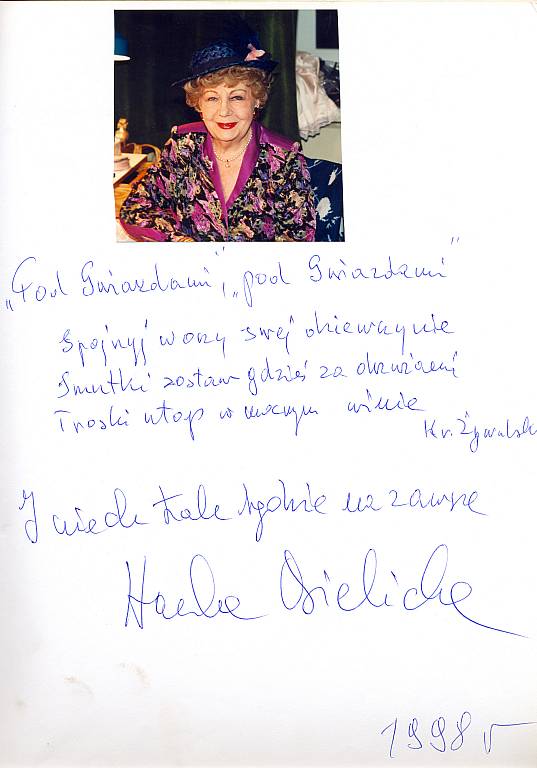 „Pod Gwiazdami”, „pod Gwiazdami”
Spojrzyj w oczy swej dziewczynie
Smutki zostaw gdzieś za drzwiami
Troski utop w mocnym winie
Kr. Żywulska
I niech tak będzie na zawsze
Hanka Bielicka
1998 r